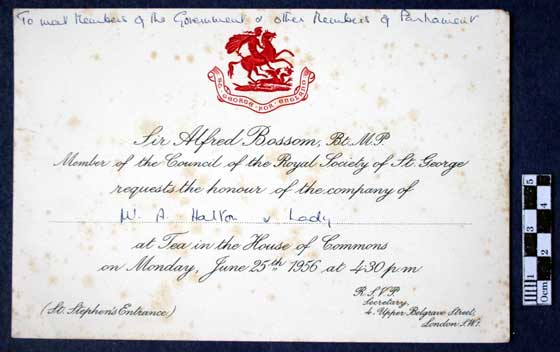 To meet Members of the Government & other Members of Parliament
ST. GEORGE · FOR · ENGLAND
Sir Alfred Bossom, Bt. M.P.
Member of the Council of the Royal Society of St. George
requests the honour of the company of
W. A. Halton & Lady
at Tea in the House of Commons
on Monday, June 25th 1956 at 4.30 p.m
R.S.V.P.
Secretary,
(St. Stephen's Entrance)
4, Upper Belgrave Street,
London S.W.1.
5
4
3
2
1
0cm